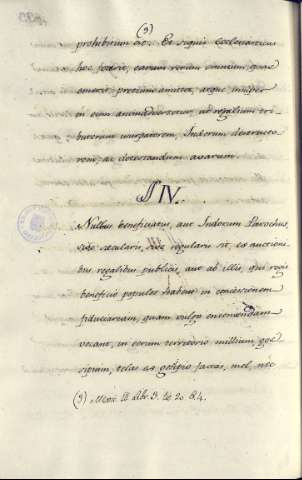 (9)
prohibitum est. Et siquis ecclesiasticus
hoc fecerit, earum rerum omnium, quas
emerit, pretium amittat, atque insuper
in eum animadvertatur, ut regalium tri
butorum usurpatorem, Indorum destructo
rem, ac detestandum avarum.
§ IV.
Nullus beneficiatus, aut Indorum Parochus,
sive secularis, sive regularis sit, ex auctioni
bus regalibus publicis, aut ab illis, qui regis
beneficio populos habent in concessionem
fiduciariam, quam vulgo encomendam
vocant, in eorum territorio millium, gos
sipium, telas ex gossipio factas, mel, nec
(9) Mex. 12. Libr. 3. tt. 20. § 4.